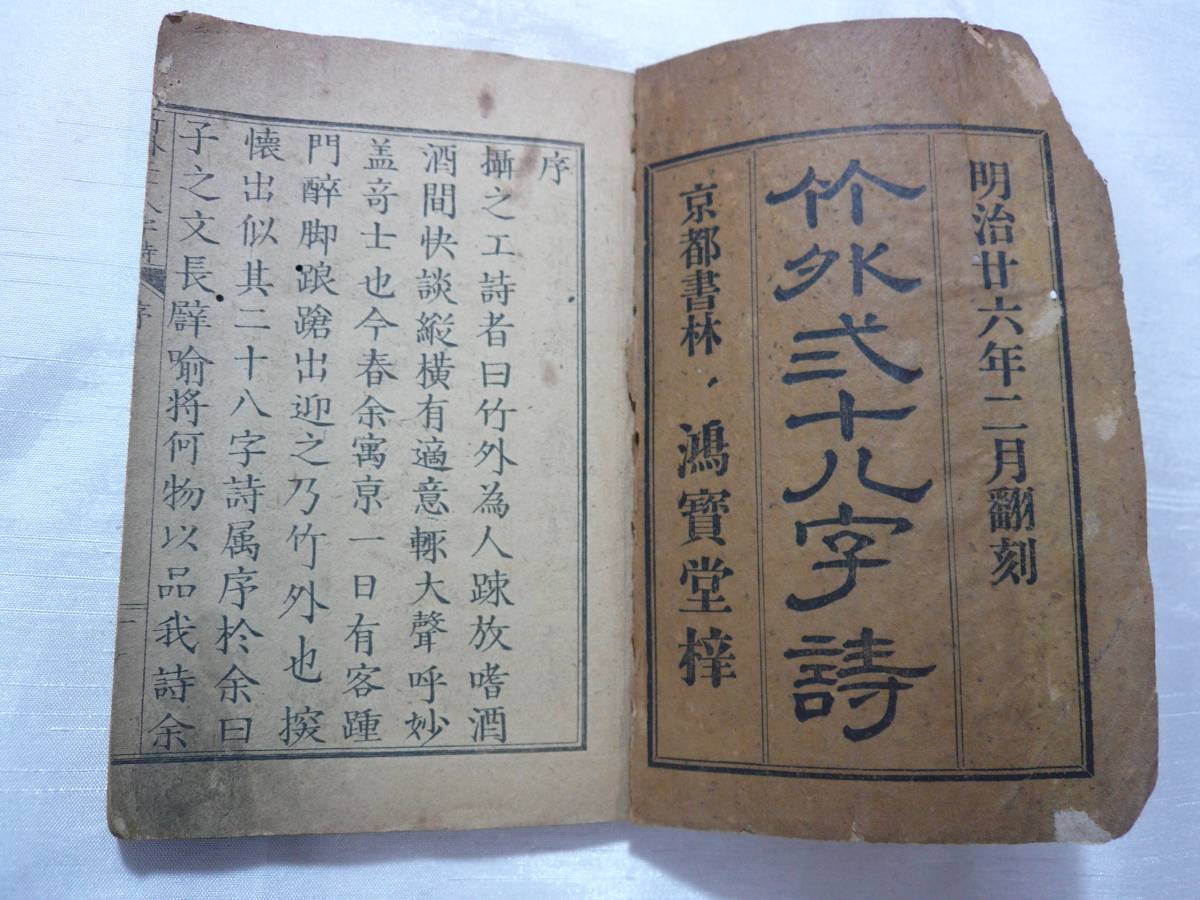 明治廿六年二月翻刻
竹外弐十八字詩
京都書林、鴻寶堂梓
序
攝之工詩者曰竹外為人踈放嗜酒
酒間快談縱横有適意輙大聲呼妙
盖竒士也今春余寓亰一日有客踵
門醉脚踉蹌出迎之乃竹外也揬
懐出似其二十八字詩属序扵余曰
子之文長譬喻将何物以品我詩余